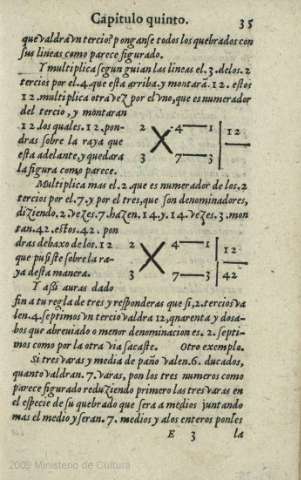 Capitulo quinto. 35
que valdra vn tercio? ponganse todos los quebrados con
sus lineas como parece figurado.
Y multiplica segun guian las lineas el .3. de los .2
tercios por el .4. que esta arriba. y montarà .12. estos
12. multiplica otra vez por el vno, que es numerador
del tercio, y montaran
12. los quales .12. pon-
dras sobre la raya que
esta adelante, y quedara
la figura como parece.
2 4 1 12
3 7 3
Multiplica mas el .2. que es numerador de los .2
tercios por el .7. y por el tres, que son denominadores,
diziendo .2. vezes .7. hazen .14. y .14. vezes .3. mon
tan .42. estos .42. pon
dras debaxo de los .12
que pusiste sobre la ra-
ya desta manera.
2 4 1 12
3 7 3 42
Y assi auras dado
fin a tu regla de tres y responderas que si, 2. tercios va
len .4. septimos vn tercio valdra 12, quarenta y dosa-
bos que abreuiado a menor denominacion es .2. septi-
mos como por la otra via sacaste. Otro exemplo.
Si tres varas y media de paño valen .6. ducados,
quanto valdran .7. varas, pon los tres numeros como
parece figurado reduziendo primero las tres varas en
el especie de su quebrado que sera a medios juntando
mas el medio y seran .7. medios y a los enteros ponles
E 3 la
2009 Ministerio de Cultura